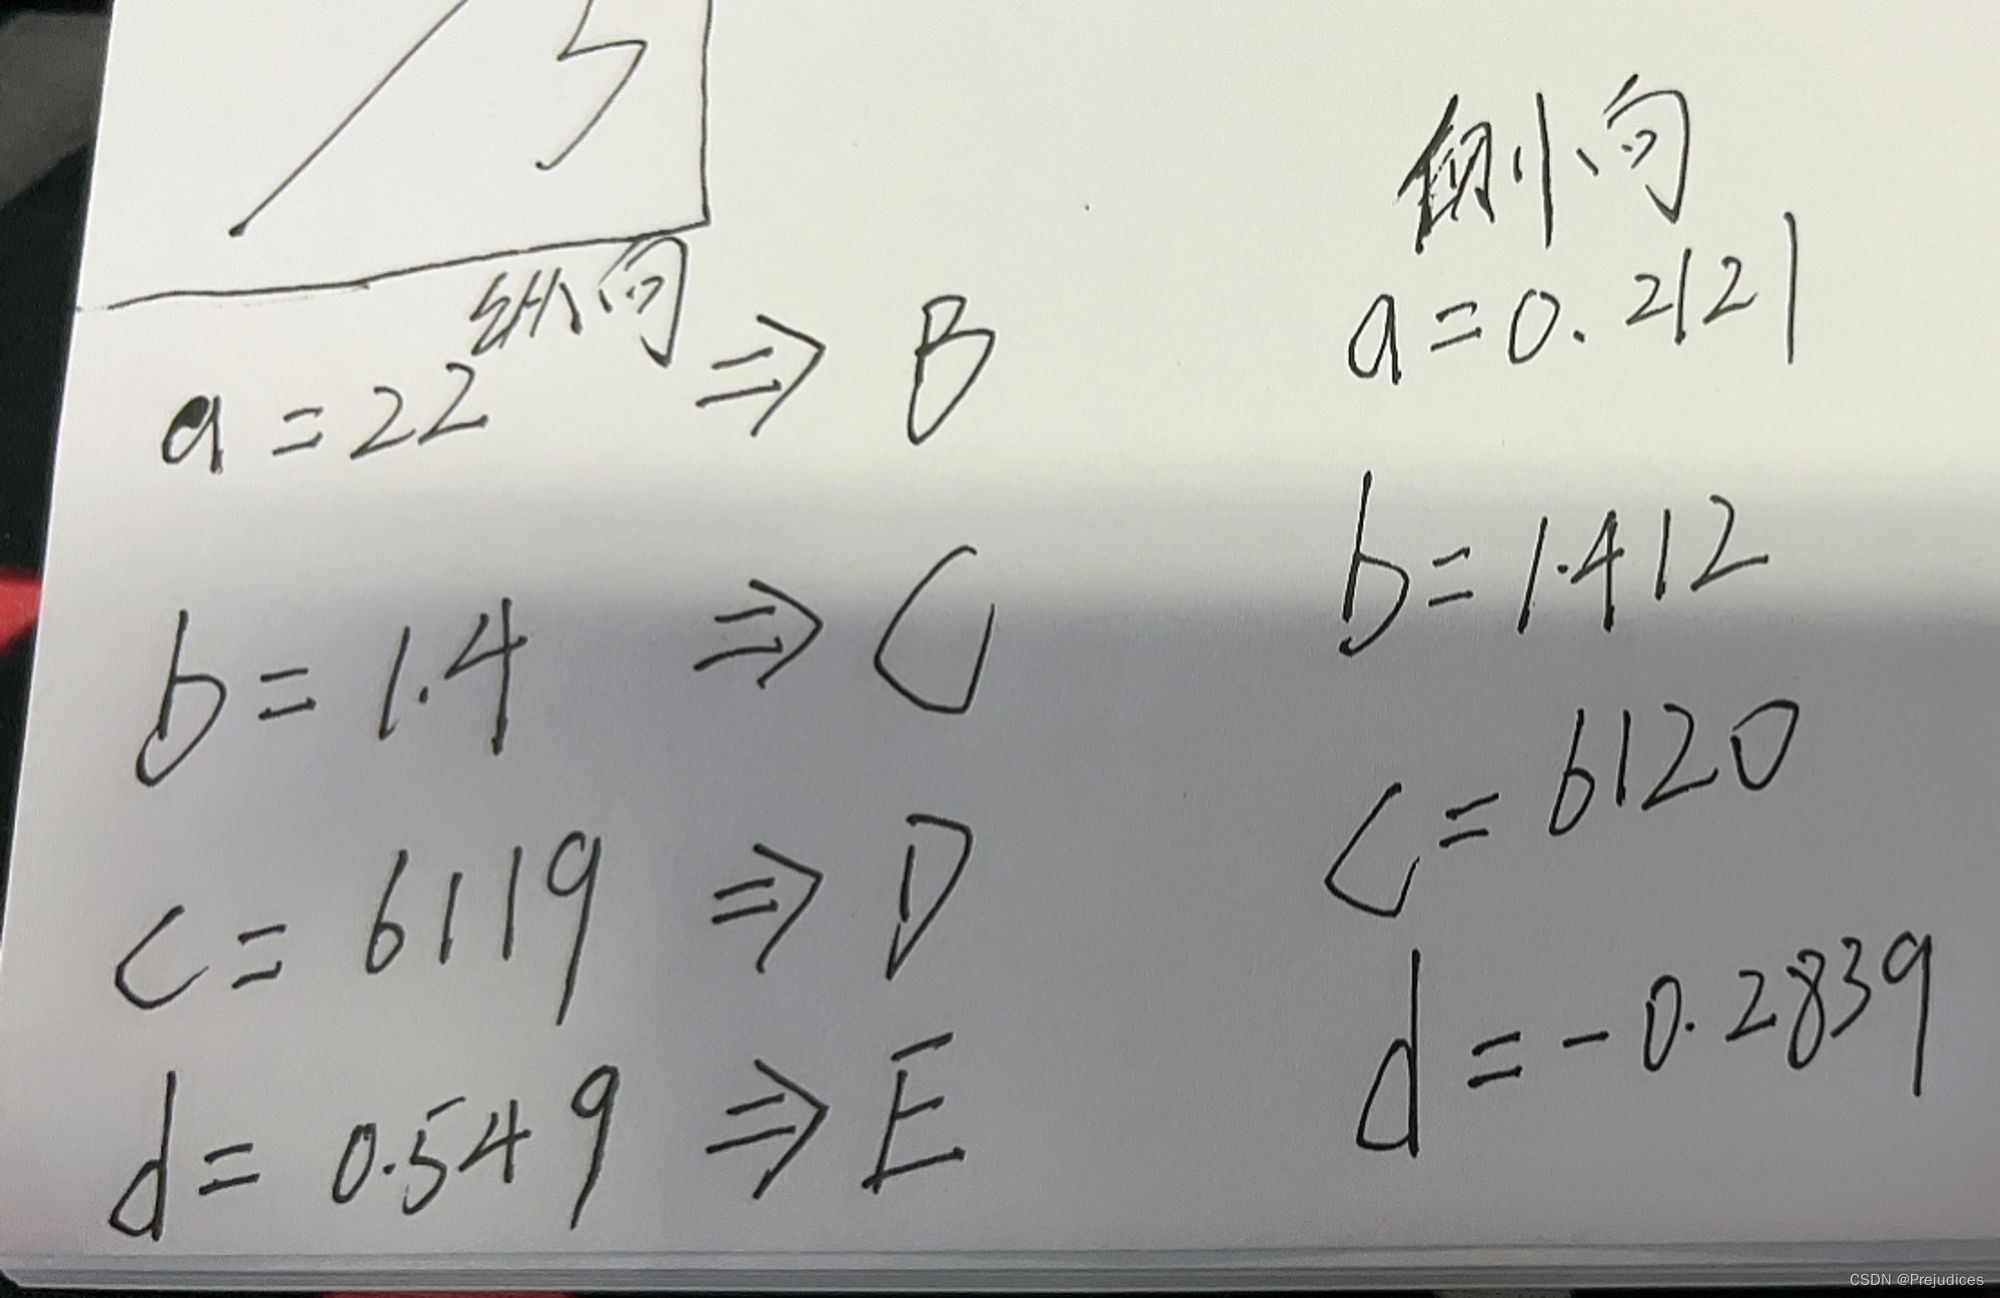 纵向
a = 22 ⇒ B
b = 1.4 ⇒ C
c = 6119 ⇒ D
d = 0.549 ⇒ E
侧向
a = 0.2121
b = 1.412
c = 6120
d = -0.2839
CSDN @Prejudices